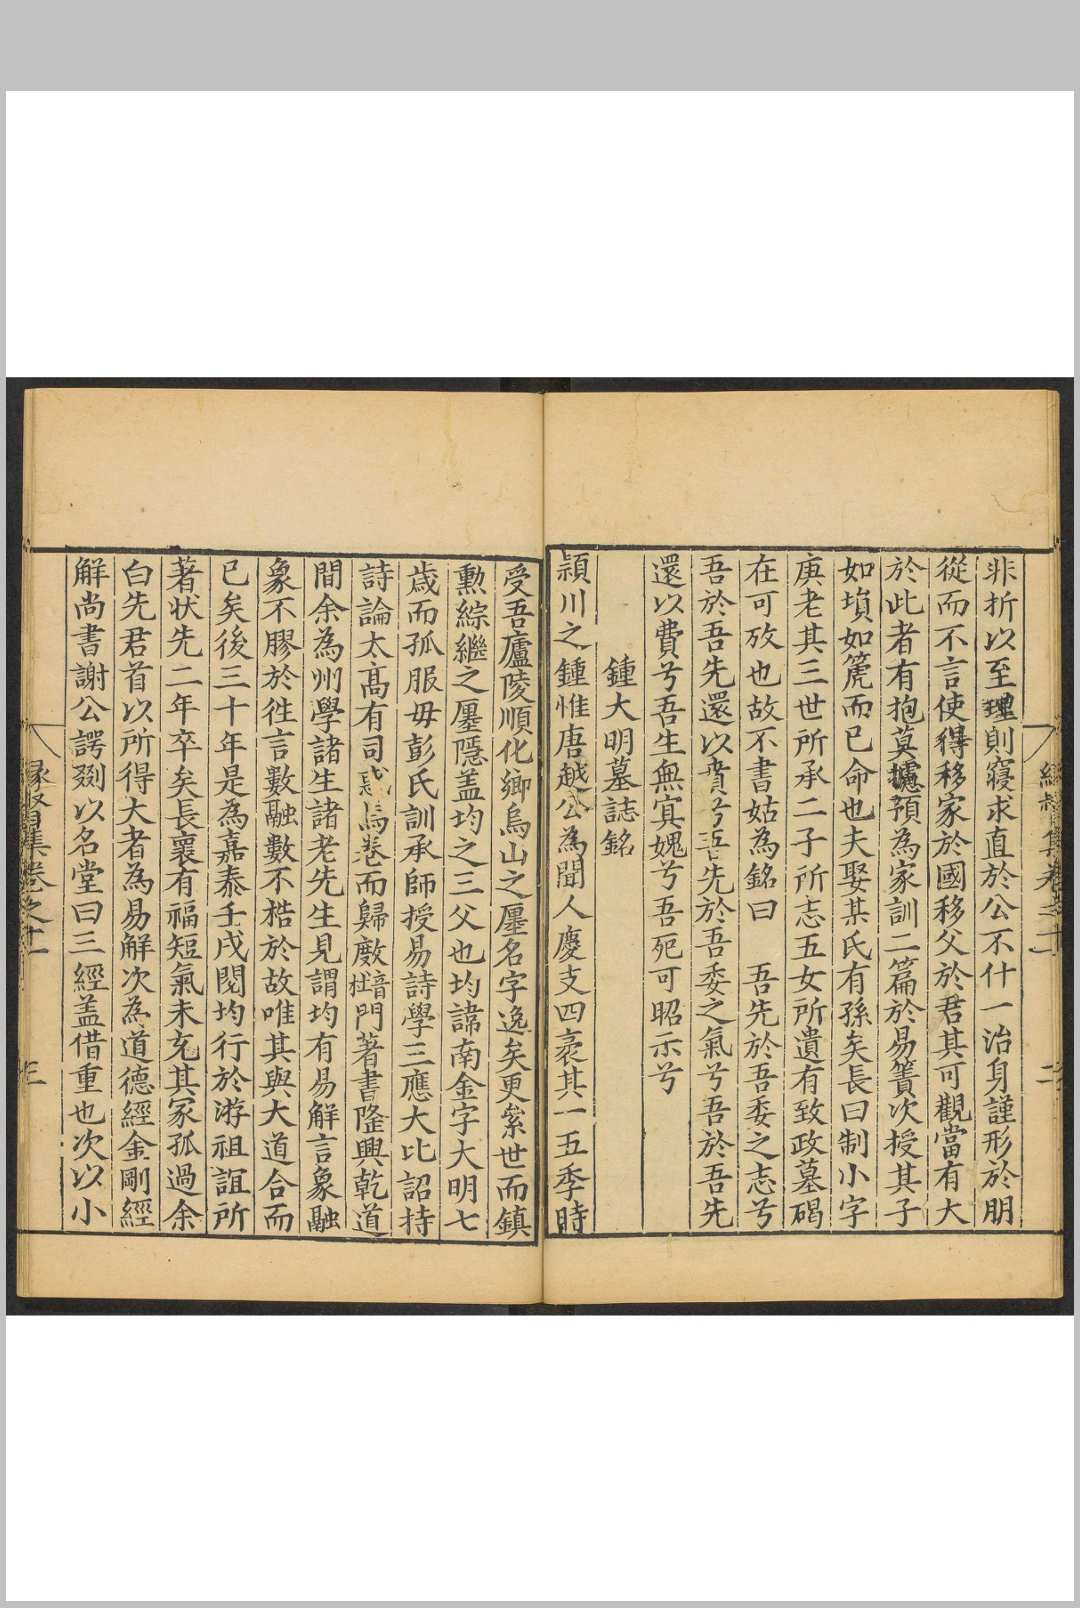 非折以至理則寢求直於公不什一治身謹形於朋
從而不言使得移家於國移父於君其可觀當有大
於此者有抱莫攄預為家訓二篇於易簀次授其子
如塤如篪而已命也夫娶某氏有孫矣長曰制小字
庚老其三世所承二子所志五女所遺有致政墓碣
在可攷也故不書姑為銘曰　吾先於吾委之志兮
吾於吾先還以賁兮吾先於吾委之氣兮吾於吾先
還以費兮吾生無寘媿兮吾死可昭示兮
鍾大明墓誌銘
潁川之鍾惟唐越公為聞人慶支四豪其一五季時
受吾廬陵順化鄉烏山之廛名字逸矣更絫世而鎮
勳綜繼之廛隱蓋均之三父也均諱南金字大明七
歲而孤服毋彭氏訓承師授易詩學三應大比詔持
詩論太高有司惑焉卷而歸敭杜門著書隆興乾道
間余為州學諸生諸老先生見謂均有易解言象融
象不膠於徃言數融數不梏於故唯其與大道合而
已矣後三十年是為嘉泰壬戌閱均行於游祖誼所
著狀先二年卒矣長襄有福短氣未充其冢孤過余
白先君首以所得大者為易解次為道德經金剛經
解尚書謝公諤劄以名堂曰三經蓋借重也次以小
緣督集卷之十一
三